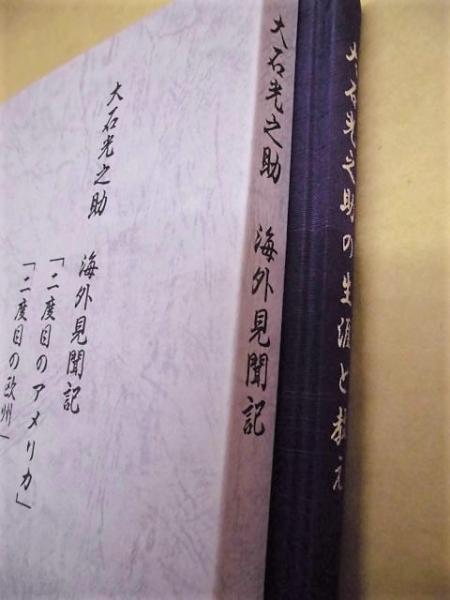 大石光之助の生涯と教え
大石光之助　海外見聞記
大石光之助
海外見聞記
「二度目のアメリカ」
「二度目の欧州」